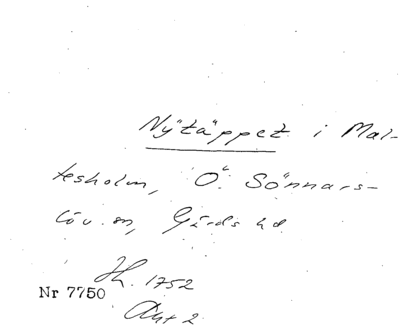 Nytäppet i Mal-
tesholm, Ö. Sönnars-
löv sn, Gärds hd
Jh. 1752
Nr 7750
Akt 2